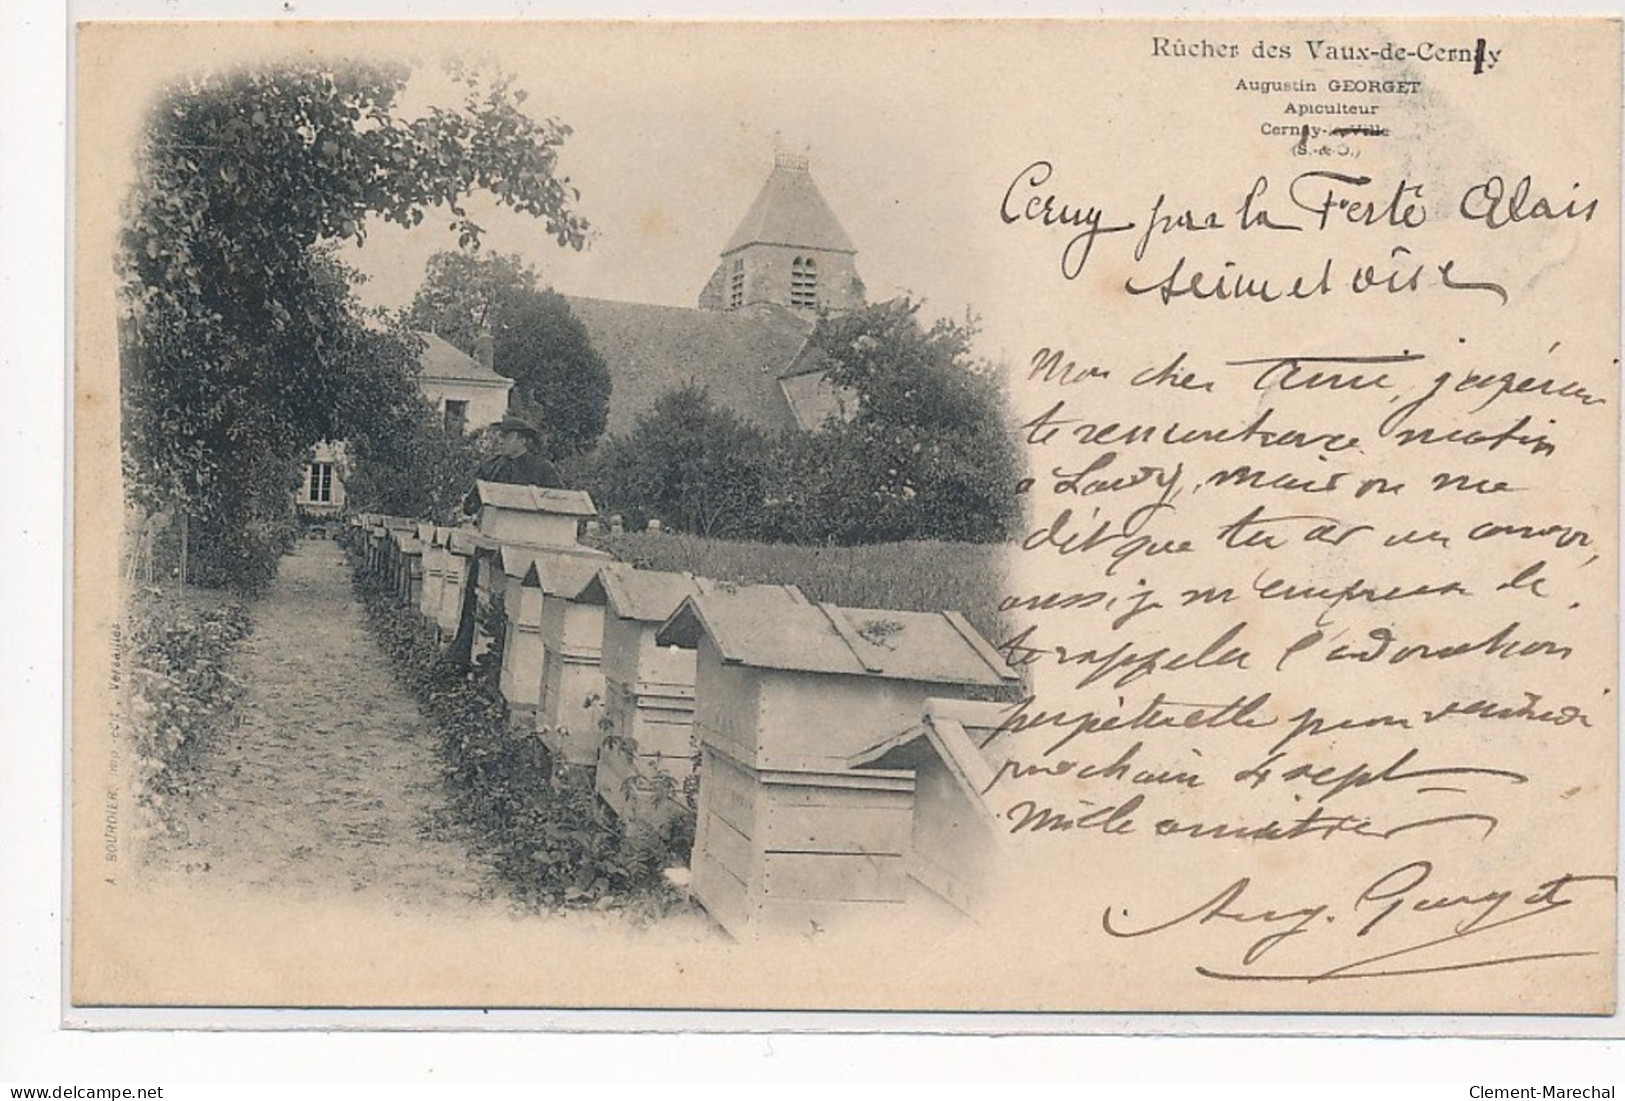 Rûcher des Vaux-de-Cernay
Augustin GEORGET
Apiculteur
Cernay-la-Ville
(S.-&-O.)
Cerny par la Ferté Alais
Seine et Oise
Mon cher Ami, j'espérais
te rencontrer ce matin
a Lardy, mais on me
dit que tu as un convoi,
aussi je m'empresse de
te rappeler l'adoration
perpétuelle pour vendredi
prochain 4 sept
Mille amitiés
Aug. Georget
A. BOURDIER, imp.-édit., Versailles
delcampe.net
Clement-Marechal